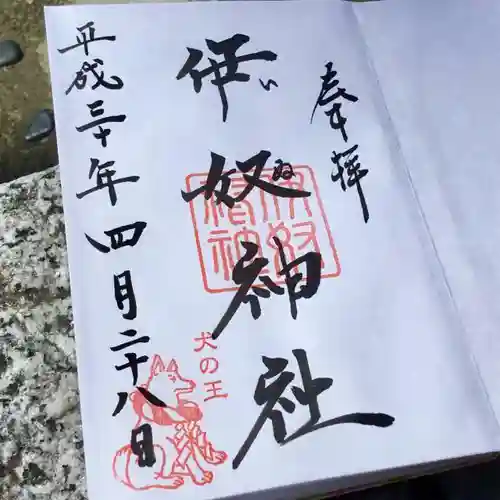 奉拝
伊奴神社
いぬ
伊奴神社
犬の王
平成三十年四月二十八日